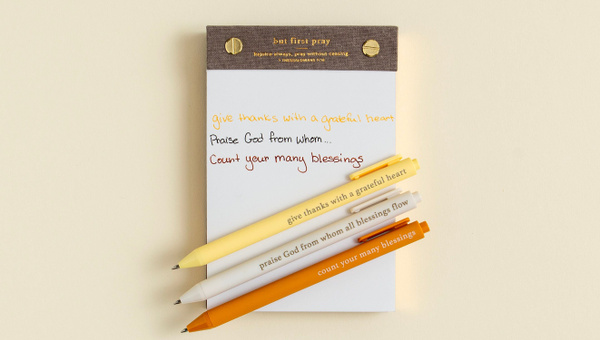 but first pray
give thanks with a grateful heart
Praise God from whom...
Count your many blessings
give thanks with a grateful heart
praise God from whom all blessings flow
count your many blessings